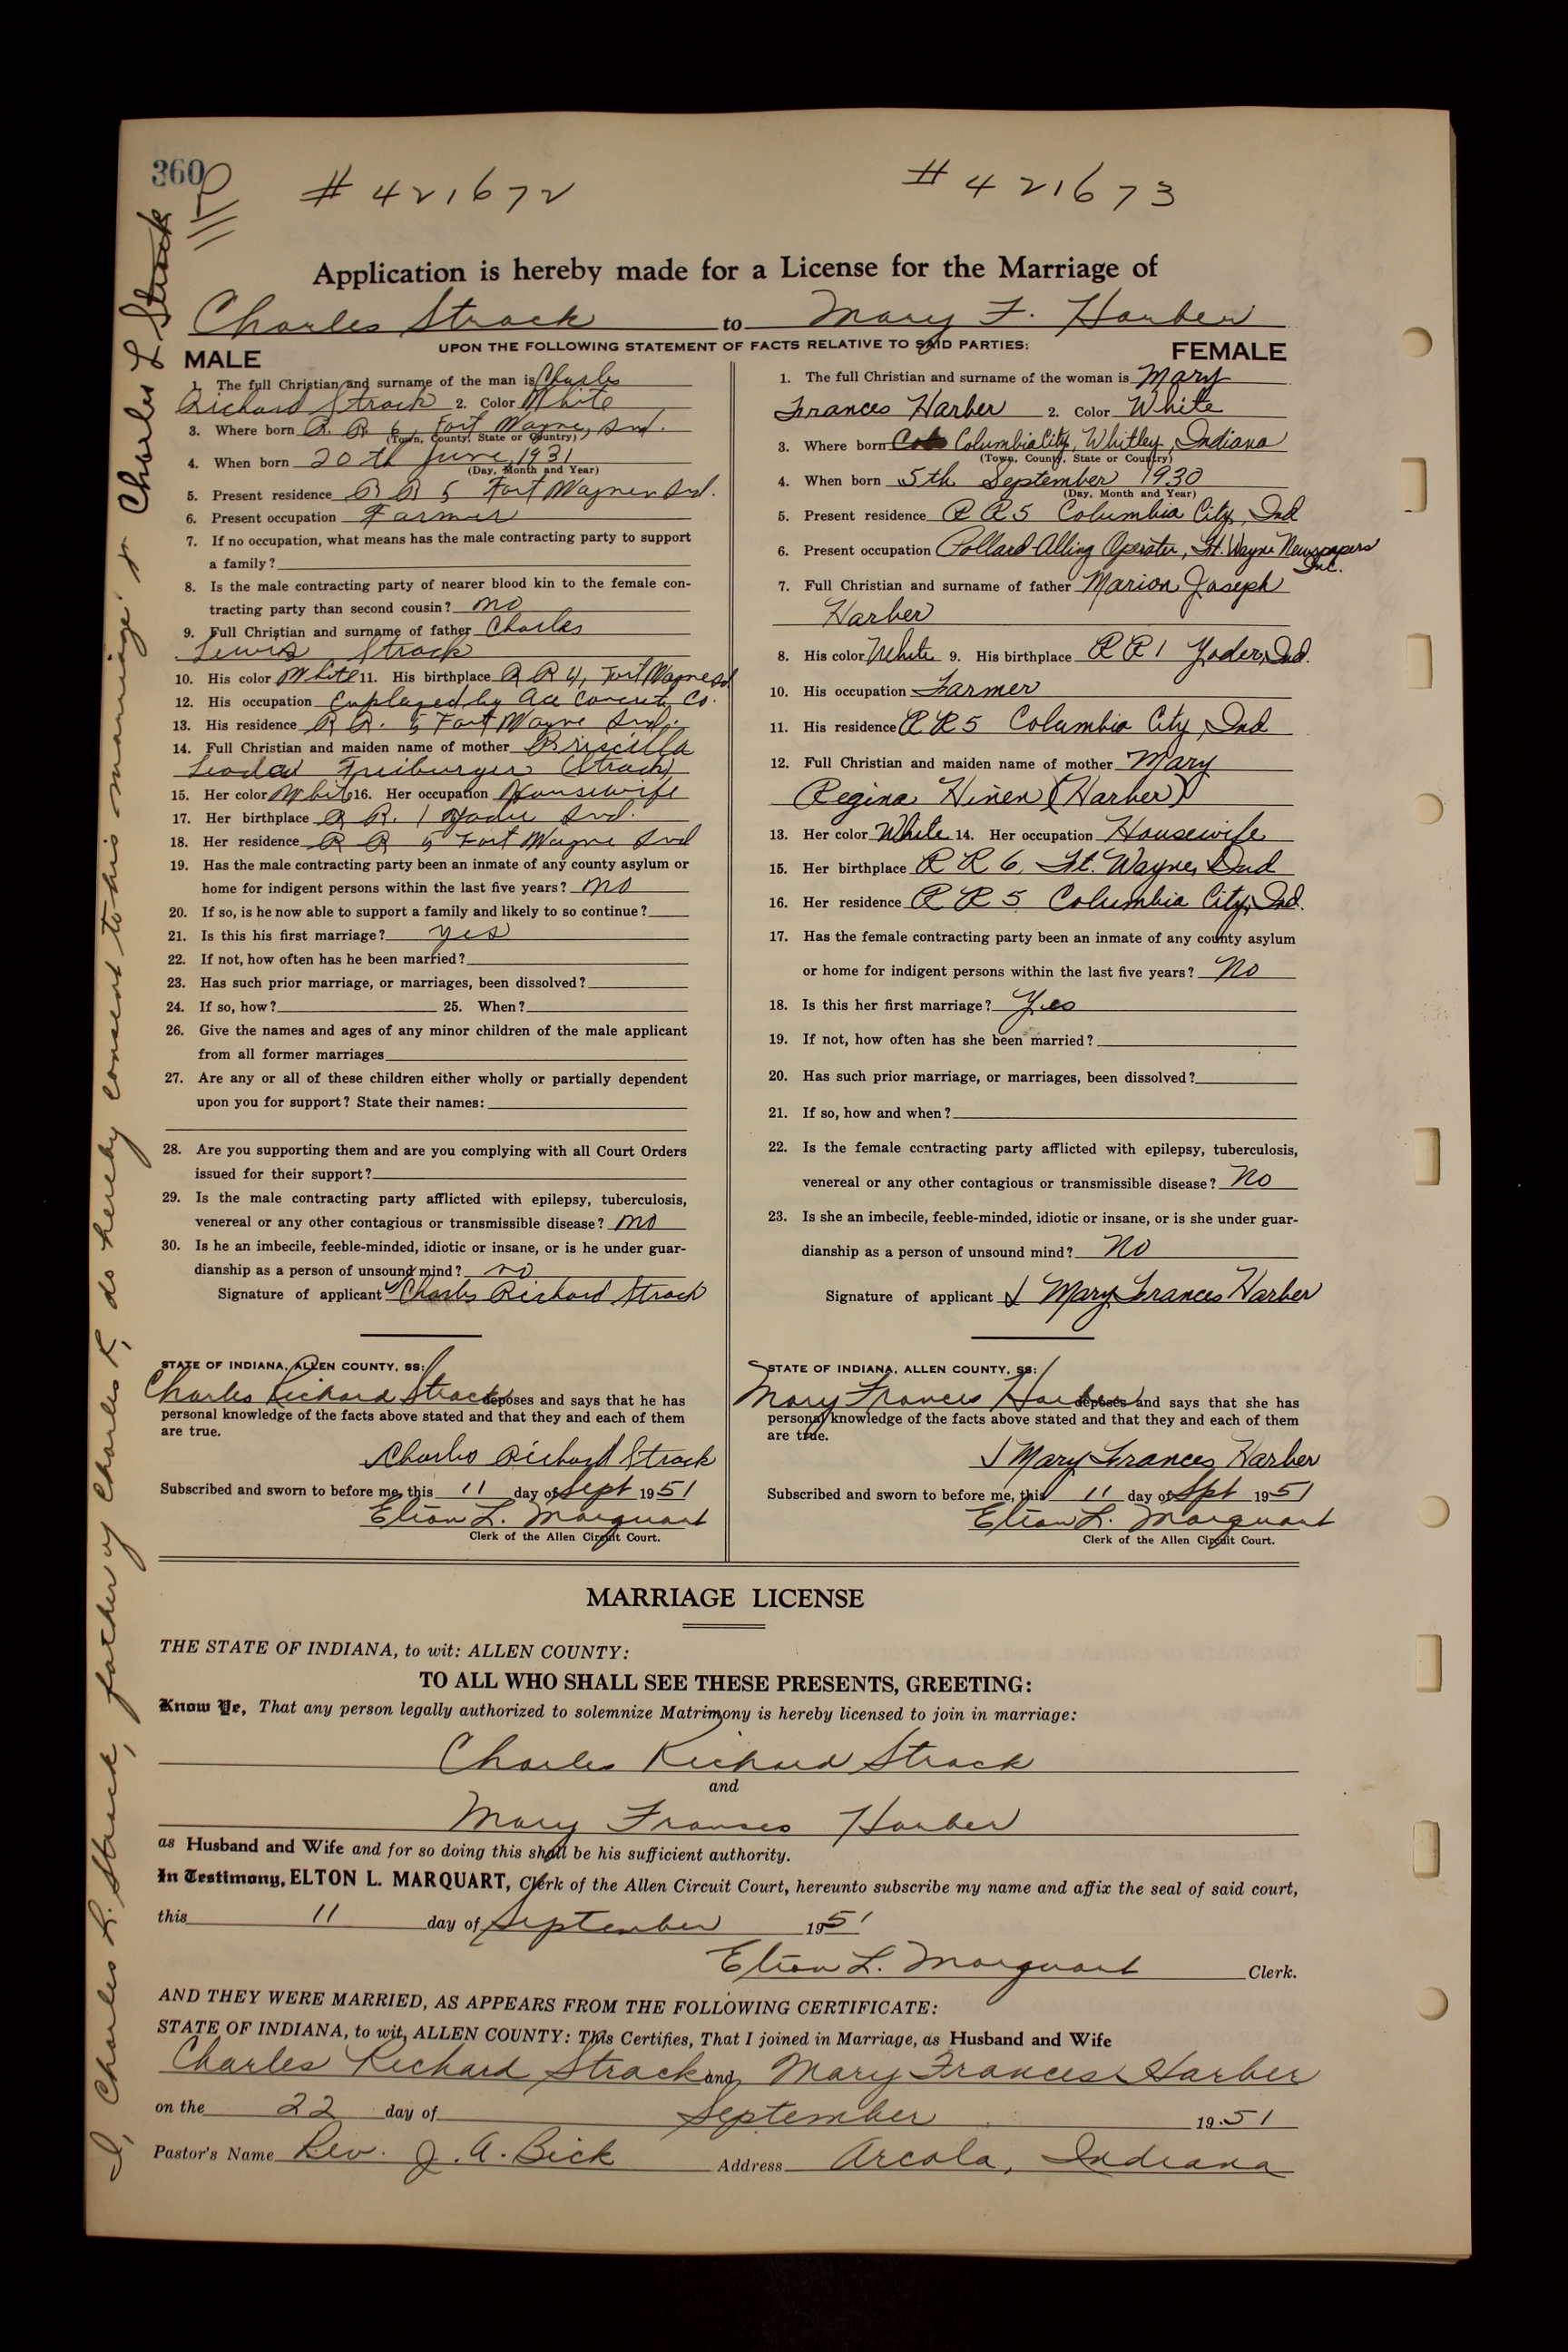 360
# 421672
# 421673
Application is hereby made for a License for the Marriage of
Charles Strack to Mary F. Harber
UPON THE FOLLOWING STATEMENT OF FACTS RELATIVE TO SAID PARTIES:
MALE
1. The full Christian and surname of the man is Charles
Richard Strack 2. Color White
3. Where born R. R. 6, Fort Wayne, Ind.
(Town, County, State or Country)
4. When born 20th June, 1931
(Day, Month and Year)
5. Present residence R R 5 Fort Wayne Ind.
6. Present occupation Farmer
7. If no occupation, what means has the male contracting party to support
a family?
8. Is the male contracting party of nearer blood kin to the female con-
tracting party than second cousin? no
9. Full Christian and surname of father Charles
Lewis Strack
10. His color White 11. His birthplace R R 4, Fort Wayne Ind
12. His occupation Employed by Ace Concrete Co.
13. His residence R R. 5 Fort Wayne Ind.
14. Full Christian and maiden name of mother Priscilla
Freiburger (Strack)
15. Her color White 16. Her occupation Housewife
17. Her birthplace R R. 1 Yoder Ind.
18. Her residence R R 5 Fort Wayne Ind
19. Has the male contracting party been an inmate of any county asylum or
home for indigent persons within the last five years? no
20. If so, is he now able to support a family and likely to so continue?
21. Is this his first marriage? yes
22. If not, how often has he been married?
23. Has such prior marriage, or marriages, been dissolved?
24. If so, how? 25. When?
26. Give the names and ages of any minor children of the male applicant
from all former marriages
27. Are any or all of these children either wholly or partially dependent
upon you for support? State their names:
28. Are you supporting them and are you complying with all Court Orders
issued for their support?
29. Is the male contracting party afflicted with epilepsy, tuberculosis,
venereal or any other contagious or transmissible disease? no
30. Is he an imbecile, feeble-minded, idiotic or insane, or is he under guar-
dianship as a person of unsound mind? no
Signature of applicant Charles Richard Strack
STATE OF INDIANA, ALLEN COUNTY, SS:
Charles Richard Strack deposes and says that he has
personal knowledge of the facts above stated and that they and each of them
are true.
Charles Richard Strack
Subscribed and sworn to before me, this 11 day of Sept 1951
Elton L. Marquart
Clerk of the Allen Circuit Court.
FEMALE
1. The full Christian and surname of the woman is Mary
Frances Harber 2. Color White
3. Where born Columbia City, Whitley, Indiana
(Town, County, State or Country)
4. When born 5th September 1930
(Day, Month and Year)
5. Present residence R R 5 Columbia City, Ind
6. Present occupation Pollard-Alling Operator, Ft. Wayne Newspapers
Inc.
7. Full Christian and surname of father Marion Joseph
Harber
8. His color White 9. His birthplace R R 1 Yoder, Ind.
10. His occupation Farmer
11. His residence R R 5 Columbia City, Ind
12. Full Christian and maiden name of mother Mary
Regina Hinen (Harber)
13. Her color White 14. Her occupation Housewife
15. Her birthplace R R 6, Ft. Wayne, Ind
16. Her residence R R 5 Columbia City, Ind.
17. Has the female contracting party been an inmate of any county asylum
or home for indigent persons within the last five years? No
18. Is this her first marriage? Yes
19. If not, how often has she been married?
20. Has such prior marriage, or marriages, been dissolved?
21. If so, how and when?
22. Is the female contracting party afflicted with epilepsy, tuberculosis,
venereal or any other contagious or transmissible disease? No
23. Is she an imbecile, feeble-minded, idiotic or insane, or is she under guar-
dianship as a person of unsound mind? No
Signature of applicant Mary Frances Harber
STATE OF INDIANA, ALLEN COUNTY, SS:
Mary Frances Harber deposes and says that she has
personal knowledge of the facts above stated and that they and each of them
are true.
Mary Frances Harber
Subscribed and sworn to before me, this 11 day of Sept 1951
Elton L. Marquart
Clerk of the Allen Circuit Court.
MARRIAGE LICENSE
THE STATE OF INDIANA, to wit: ALLEN COUNTY:
TO ALL WHO SHALL SEE THESE PRESENTS, GREETING:
Know Ye, That any person legally authorized to solemnize Matrimony is hereby licensed to join in marriage:
Charles Richard Strack
and
Mary Frances Harber
as Husband and Wife and for so doing this shall be his sufficient authority.
In Testimony, ELTON L. MARQUART, Clerk of the Allen Circuit Court, hereunto subscribe my name and affix the seal of said court,
this 11 day of September 1951
Elton L. Marquart Clerk.
AND THEY WERE MARRIED, AS APPEARS FROM THE FOLLOWING CERTIFICATE:
STATE OF INDIANA, to wit, ALLEN COUNTY: This Certifies, That I joined in Marriage, as Husband and Wife
Charles Richard Strack and Mary Frances Harber
on the 22 day of September 19.51
Pastor's Name Rev. J. A. Bick Address Arcola, Indiana
I, Charles L. Strack, father of Charles R, do hereby consent to his marriage. x Charles L Strack